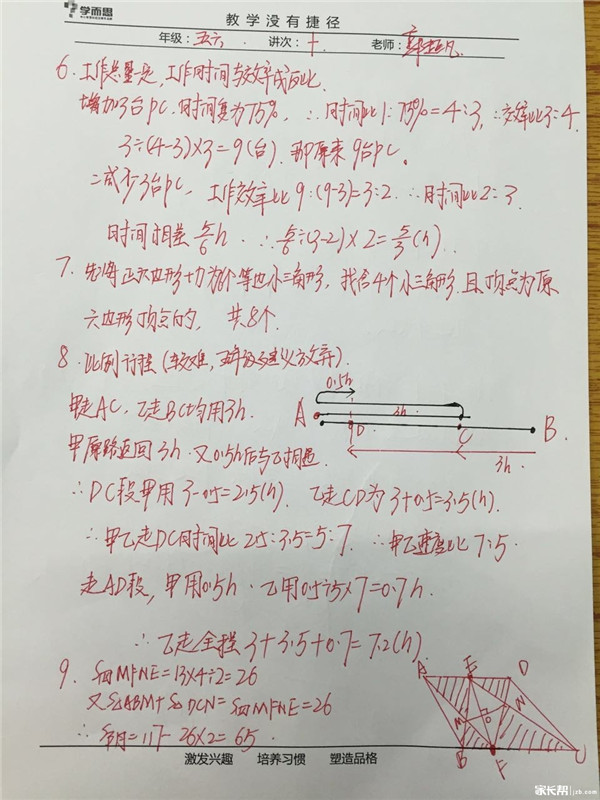 学而思
教学没有捷径
年级：五六 讲次：十 老师：
6. 工作总量是，工作时间与效率成反比.
增加3台PC.时间变为75%，∴时间比1:75%=4:3,∴效率比3:4.
3÷(4-3)×3=9(台). 即原来9台PC。
减少3台PC，工作效率比9:(9-3)=3:2.∴时间比2:3.
时间相差5/6h.∴5/6÷(3-2)×2=5/3(h).
7. 先将正六边形切为6个等边小三角形，找含4个小三角形.且顶点为原
六边形顶点的, 共8个.
8. 比例行程(较难，五年级建议放弃).
甲走AC，乙走BC均用3h.
0.5h
A 3h B.
D C
3h.
甲原路返回3h.又0.5h后与乙相遇.
∴DC段甲用3-0.5=2.5(h). 乙走CD为3+0.5=3.5(h).
∴甲乙走DC时间比2.5:3.5=5:7. ∴甲乙速度比7:5.
走AD段，甲用0.5h.乙用0.5÷5×7=0.7h.
∴乙走全程3+3.5+0.7=7.2(h)
9. S四MFNE=13×4÷2=26
又S△ABM+S△DCN=S四MFNE=26
∴S阴=117-26×2=65.
A E D
M O N
B F C
激发兴趣 培养习惯 塑造品格
家长帮 jzb.com